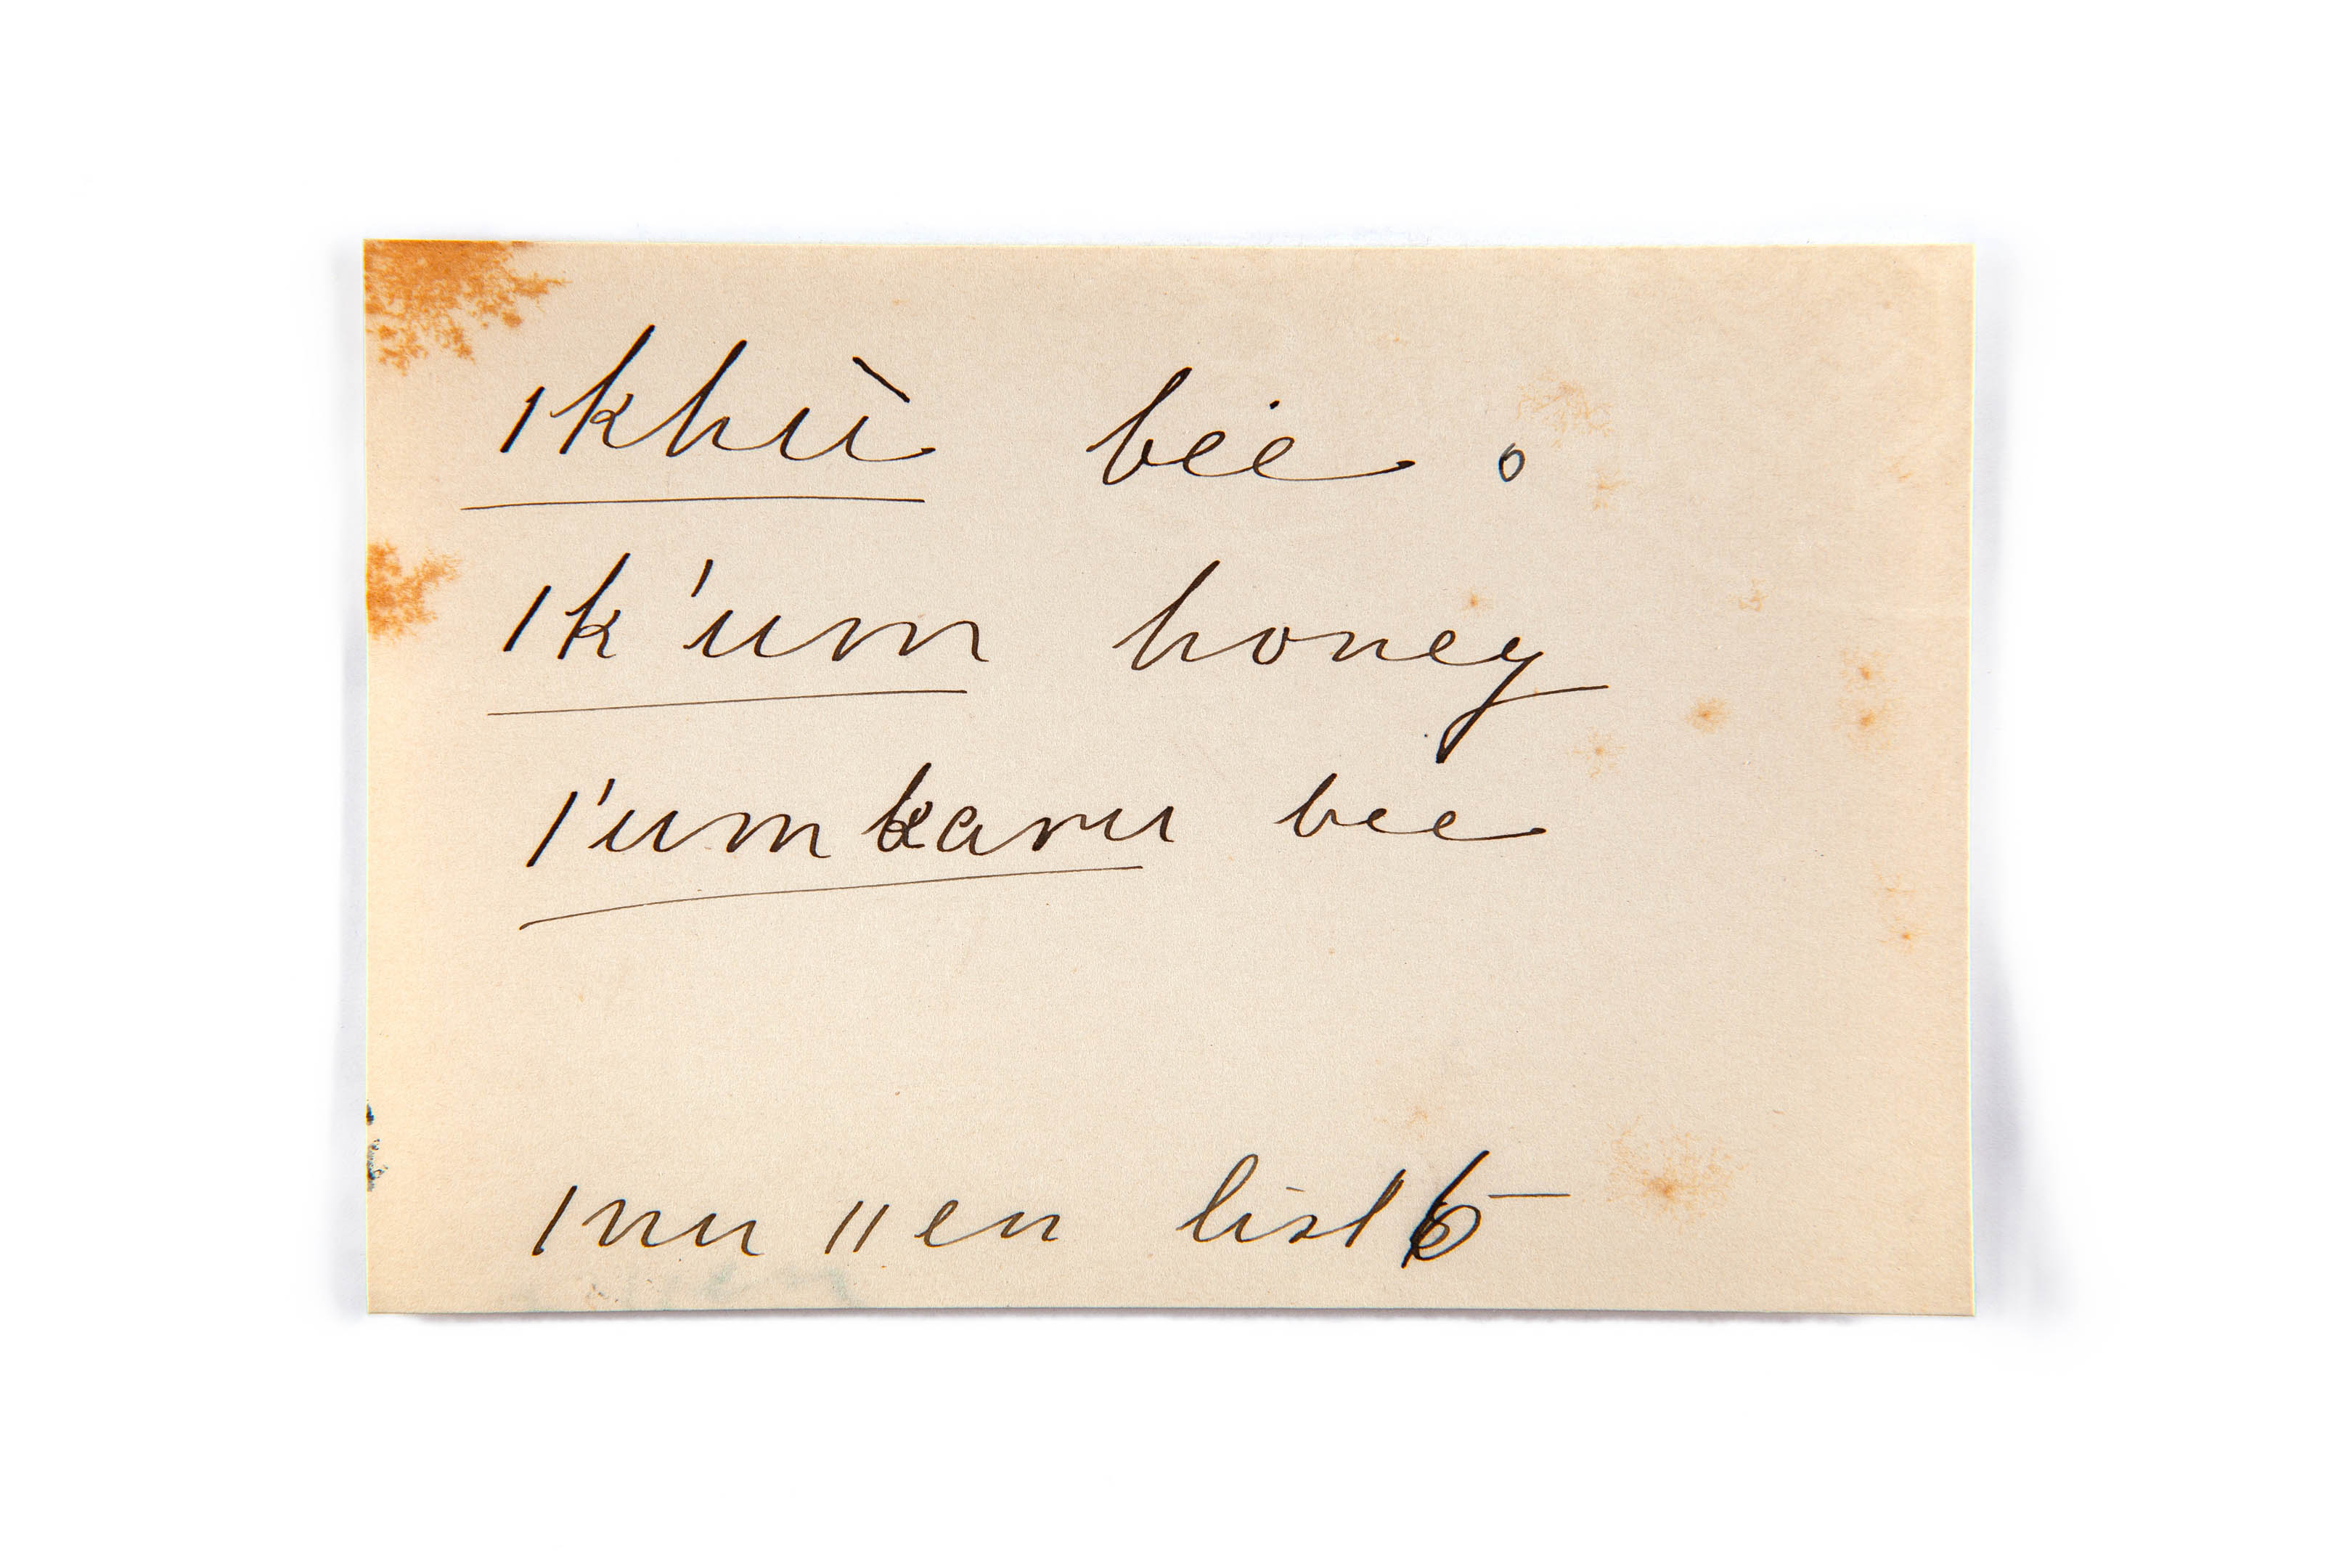 ǀkhù bee o
ǀk'um honey
ǀ'umkaru bee
ǀnu ǁen list 6